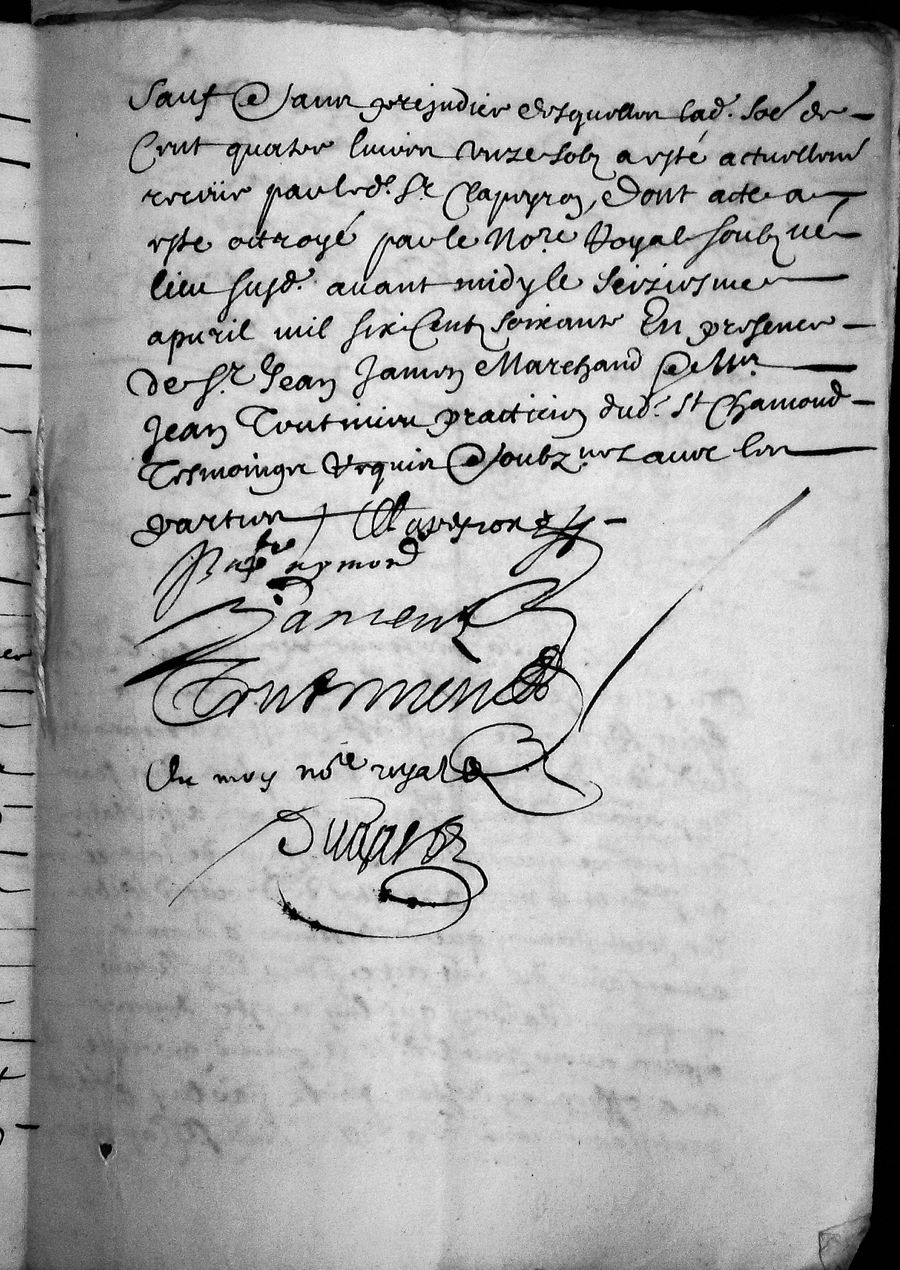 Sauf & sans prejudice desquelles lad. soe de
Cent quatre livres unze solz a esté actuellemt
receüe par led. Sr Clapeyron, dont acte a
este octroyé par le Nore Royal soubzné
lieu susd. avant midy le seiziesme
apvril mil six Cent soixante En presence
de Sr Jean Jamen Marchand & Me
Jean Toutmien practicien dud. St Chamond
Tesmoings requis & soubz.nez avec les
parties / Clapeyron
aymond
Jamen
Et moy nore royal